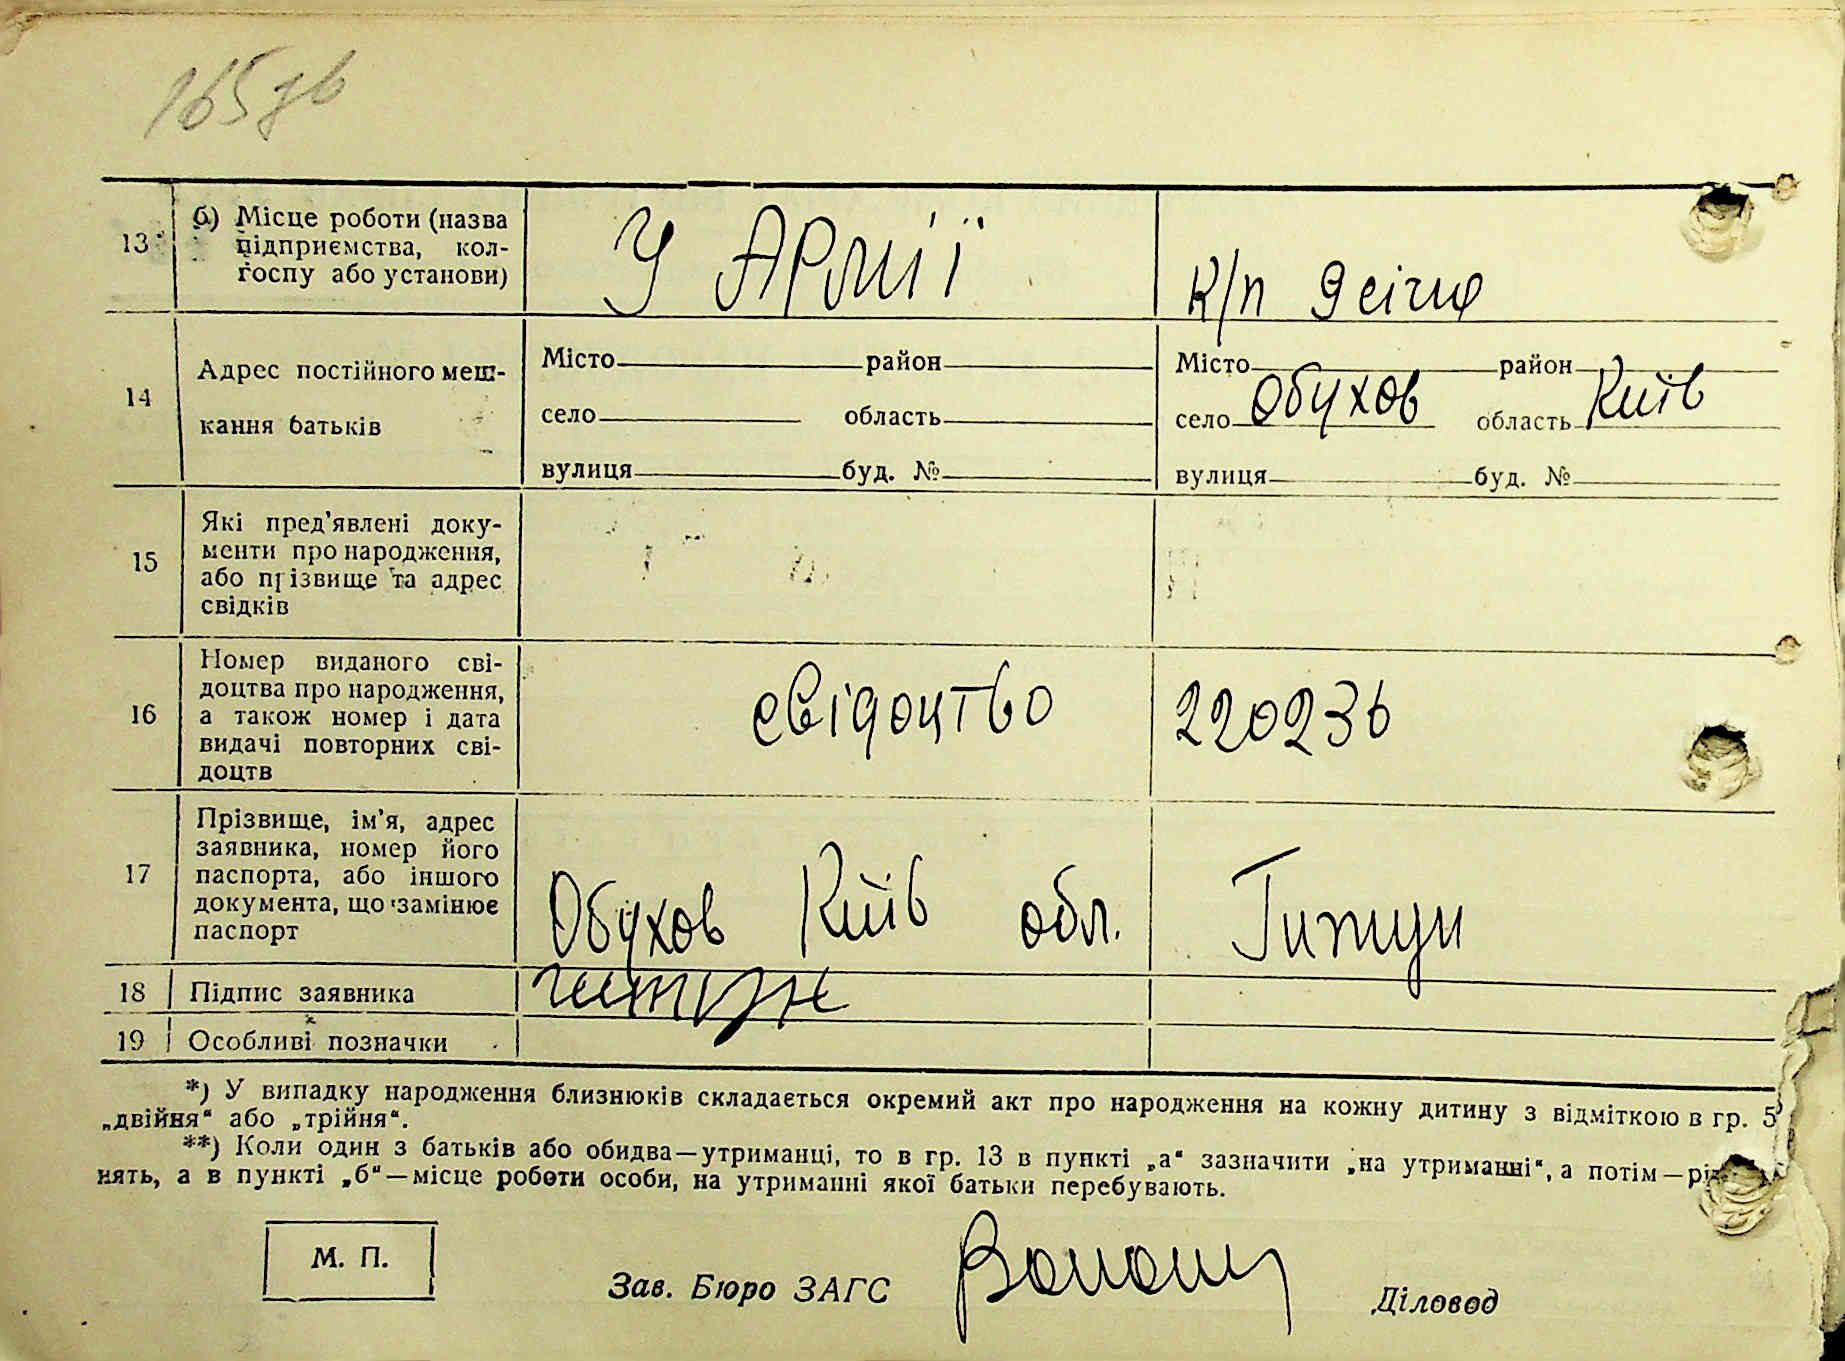 165 зв
13 б) Місце роботи (назва
підприємства, кол-
госпу або установи)
У АРМії
к/п Ясіча
14 Адрес постійного меш-
кання батьків
Місто район
село область
вулиця буд. №
Місто район
село Обухов область Київ
вулиця буд. №
15 Які пред’явлені доку-
менти про народження,
або прізвище та адрес
свідків
16 Номер виданого сві-
доцтва про народження,
а також номер і дата
видачі повторних сві-
доцтв
свідоцтво 220236
17 Прізвище, ім’я, адрес
заявника, номер його
паспорта, або іншого
документа, що замінює
паспорт
Обухов Київ обл.
18 Підпис заявника
19 Особливі позначки
*) У випадку народження близнюків складається окремий акт про народження на кожну дитину з відміткою в гр. 5
„двійня“ або „трійня“.
**) Коли один з батьків або обидва—утриманці, то в гр. 13 в пункті „а“ зазначити „на утриманні“, а потім—рід
нять, а в пункті „б“—місце роботи особи, на утриманні якої батьки перебувають.
М. П.
Зав. Бюро ЗАГС
Діловод